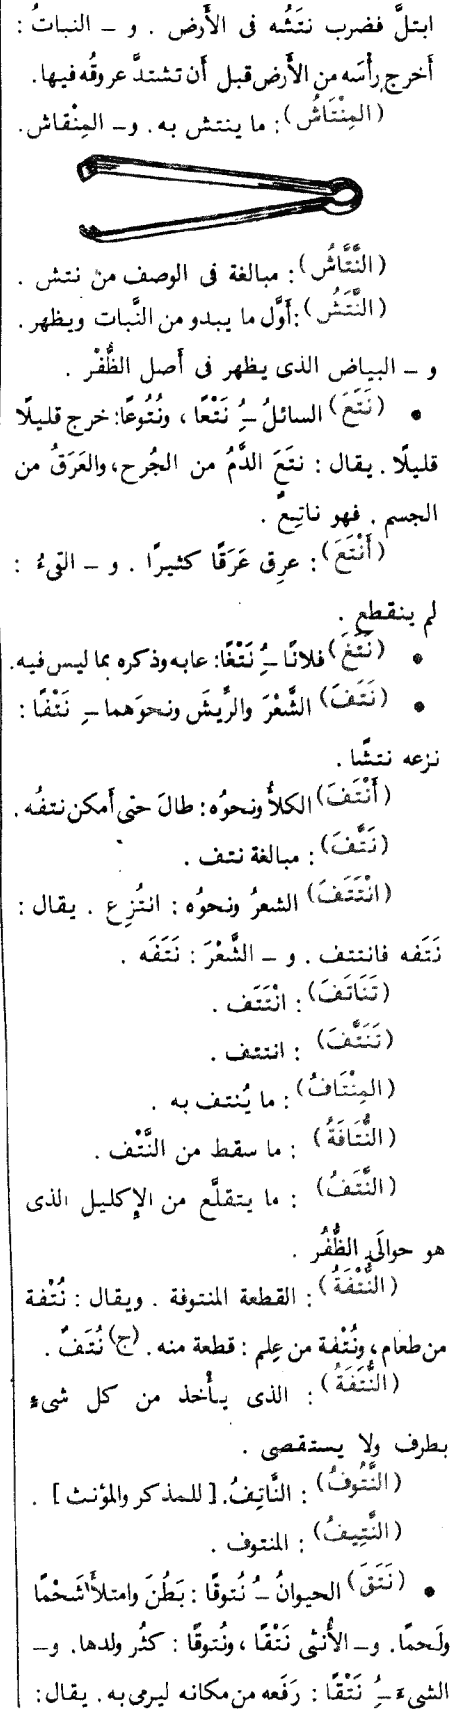 ابتلَّ فضرب نتَشُه فى الأَرض . و – النباتُ :
أَخرج رأْسَه من الأَرض قبل أَن تشتدَّ عروقُه فيها.
(المِنْتَاشُ): ما ينتش به. و– المِنْقاش.
(النَّتَّاشُ): مبالغة فى الوصف من نتش .
(النَّتَشُ): أَوَّل ما يبدو من النَّبات ويظهر.
و – البياض الذى يظهر فى أَصل الظُّفْر .
• (نَتَعَ) السائلُ ـُِ نَتْعًا ، ونُتُوعًا: خرج قليلًا
قليلًا . يقال : نتَعَ الدَّمُ من الجُرح، والعَرَقُ من
الجسم . فهو ناتِعٌ .
(أَنْتَعَ): عرِق عَرَقًا كثيرًا . و – القىءُ :
لم ينقطع .
• (نَتَغَ) فلانًا ـُِ نَتْغًا: عابه وذكره بما ليس فيه.
• (نَتَفَ) الشَّعْرَ والرِّيشَ ونحوَهما ـِ نَتْفًا :
نزعه نتشًا .
(أَنْتَفَ) الكلأُ ونحوُه: طالَ حتى أَمكن نتفُه .
(نَتَّفَ): مبالغة نتف .
(انْتَتَفَ) الشعرُ ونحوُه : انتُزِع . يقال :
نَتَفه فانتتف . و – الشَّعْرَ : نَتَفَه .
(تَنَاتَفَ): انْتَتَف .
(تَنَتَّفَ) : انتتف .
(المِنْتَافُ): ما يُنتف به .
(النُّتَافَةُ) : ما سقط من النَّتْف .
(النَّتَفُ) : ما يتقلَّع من الإكليل الذى
هو حوالَىِ الظُّفُر .
(النُّتْفَةُ): القطعة المنتوفة . ويقال : نُتْفة
من طعام، ونُتْفة من عِلم : قطعة منه. (ج) نُتَفٌ .
(النُّتَفَةُ): الذى يأْخذ من كل شىءٍ
بطرف ولا يستقصى .
(النَّتُوفُ) : النَّاتِفُ. [ للمذكر والمؤنث ] .
(النَّتِيفُ) : المنتوف .
• (نَتَقَ) الحيوانُ ـُ نُتوقًا : بَطُنَ وامتلأَ شَحْمًا
ولَحمًا. و– الأُنثى نَتْقًا ، ونُتوقًا : كثُر ولدها. و–
الشىءَ ـُِ نَتْقًا : رَفَعه من مكانه ليرمى به. يقال: